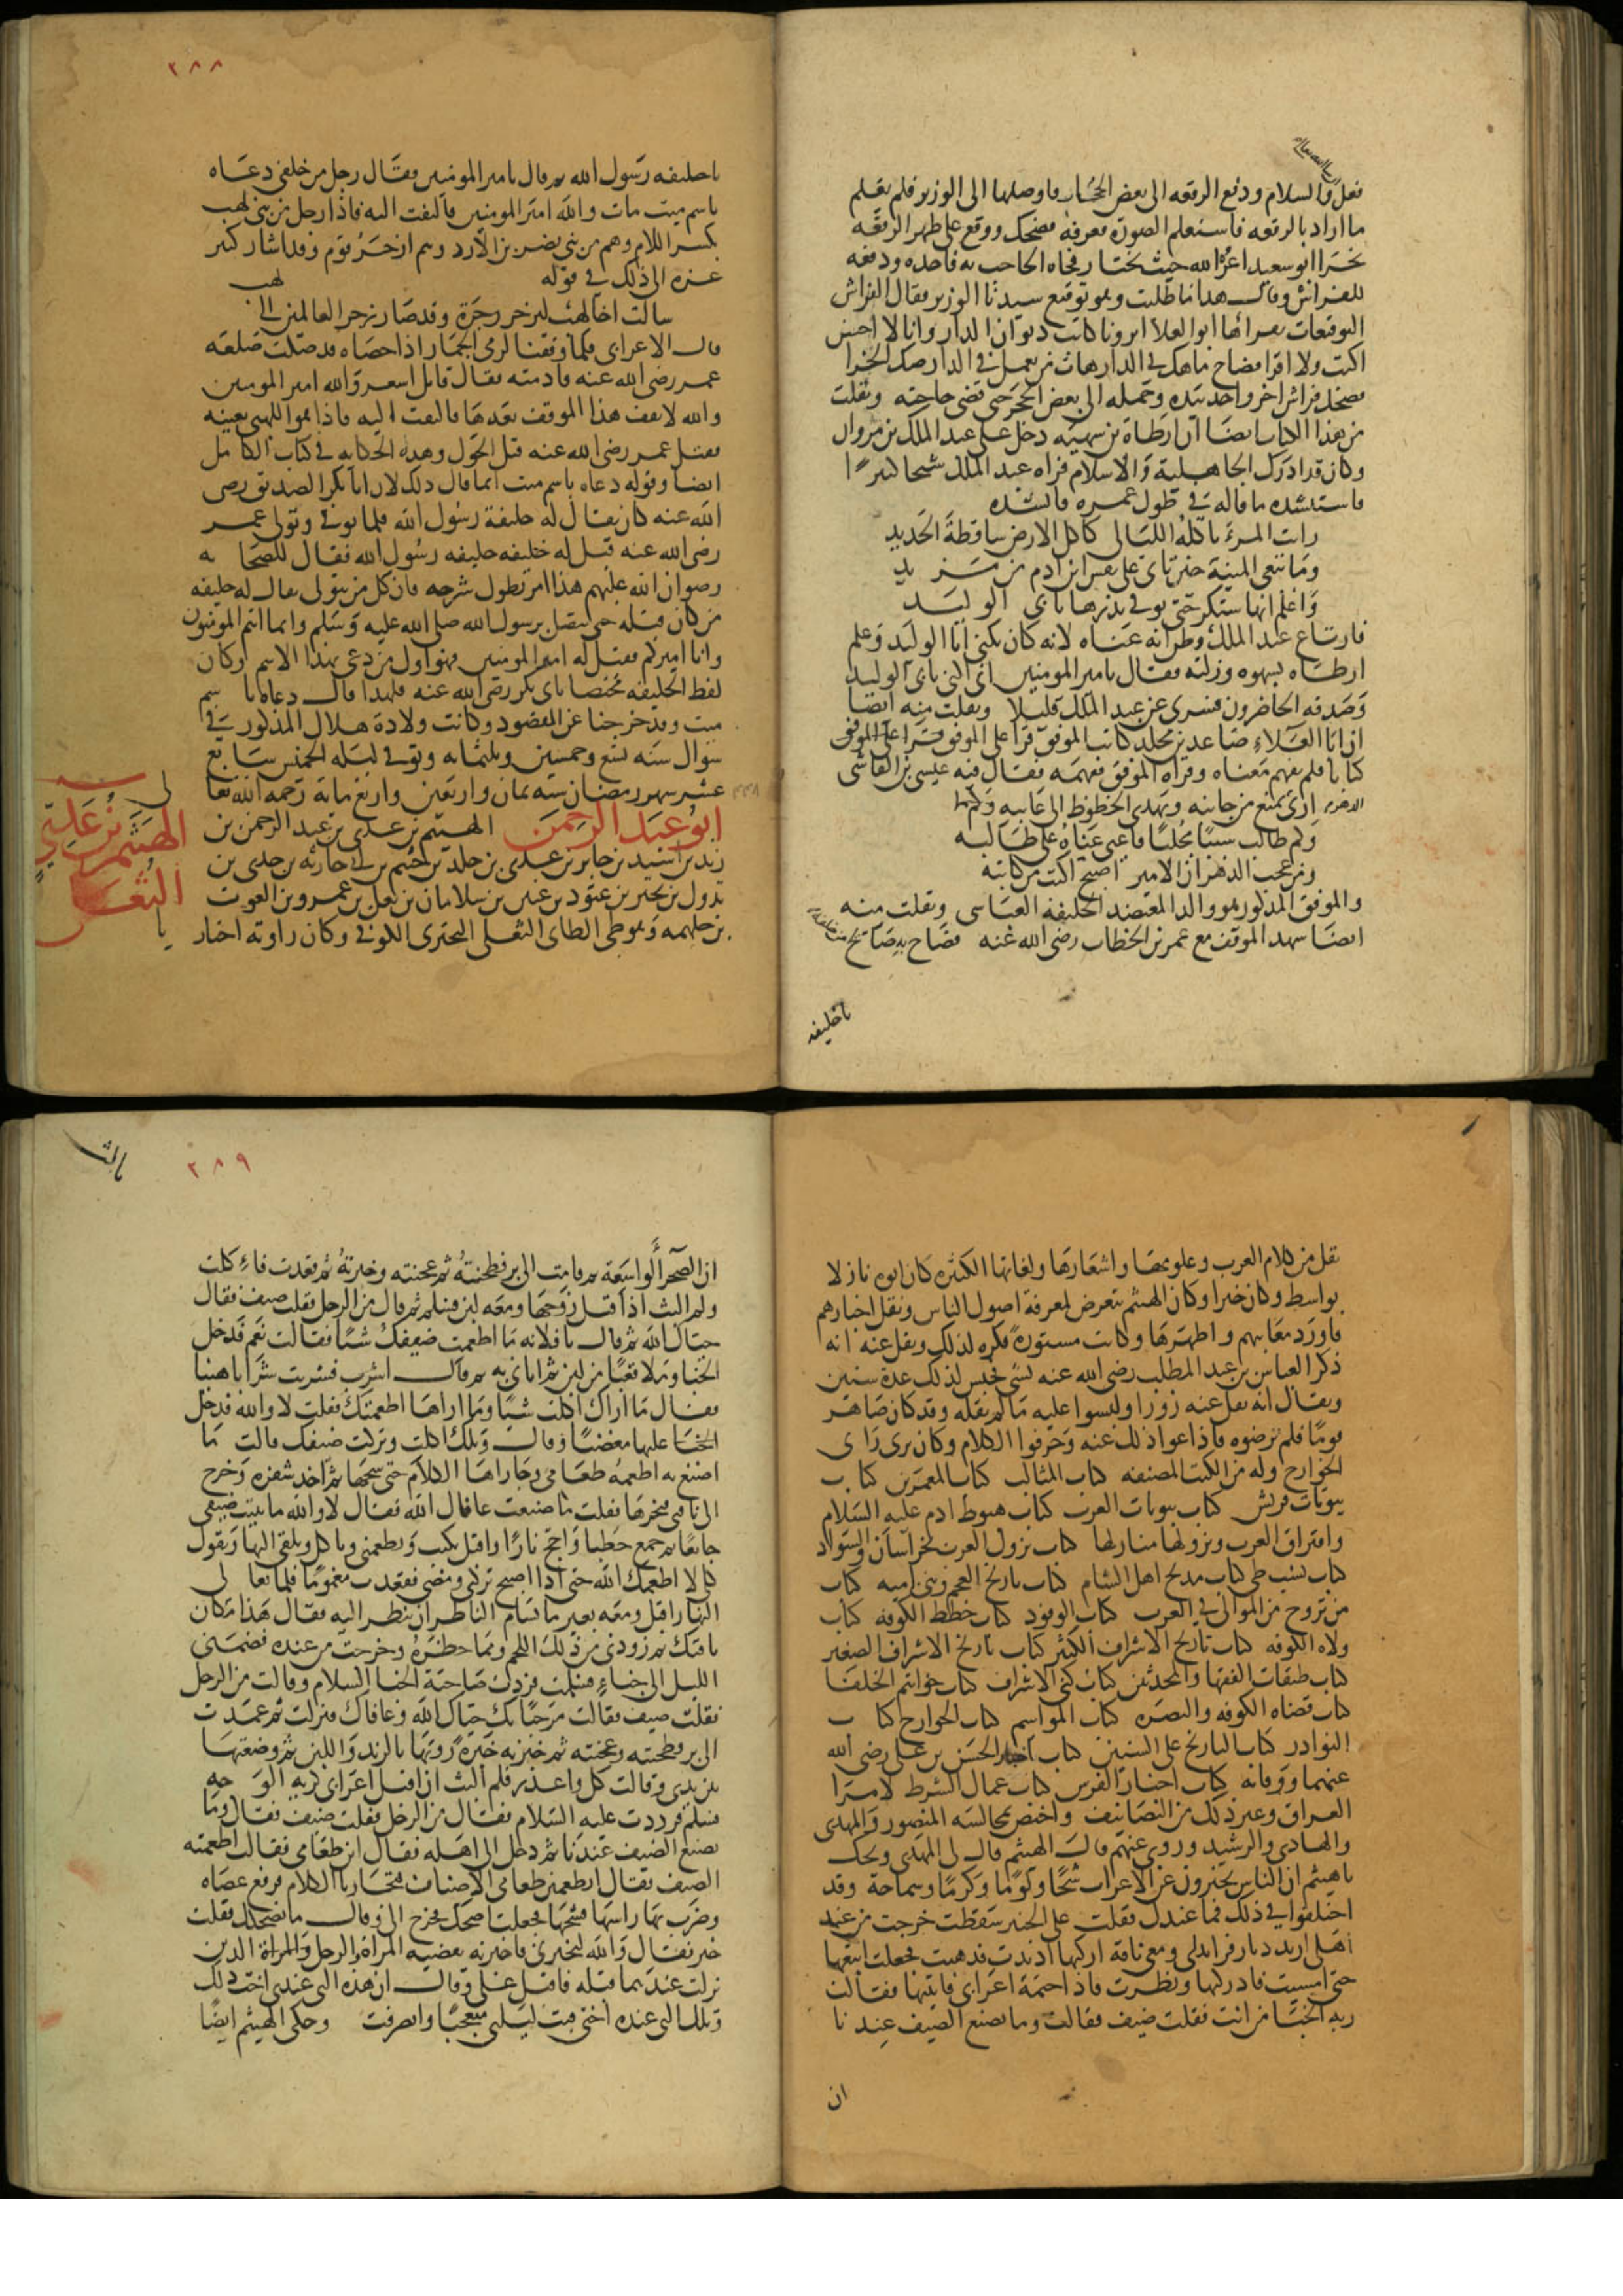 فعل والسلام ودفع الرقعه الى بعض الحجاب فاوصلها الى الوزير فلم يعلم
ما اراد بالرقعه فاستعلم الصورة فعرفه فضحك ووقع على ظهر الرقعه
ابو سعيد اعزه الله حيث يختار فجاه الحاجب به فاخده ودفعه
للفراش وقال هذا ما طلبت وهو توقيع سيدنا الوزير فقال الفراش
التوقعات يقراها ابو العلا ابرونا كاتب ديوان الدار وانا لا احسن
اكتب ولا اقرا فصاح في الدار هات من يعمل في الدار صك الخرا
فضحك فراش اخر واخد بيده وحمله الى بعض الحجر حتى قضى حاجته ونقلت
من هذا الكتاب ايضا ان ارطاة بن سهيه دخل على عبد الملك بن مروان
وكان قد ادرك الجاهلية والاسلام فراه عبد الملك شيخا كبيرا
فاستنشده ما قاله في طول عمره فانشده
رايت المرء تاكله الليالى كاكل الارض ساقطة الحديد
وما تبغى المنية حين تاتى على نفس ابن ادم من مزيد
واعلم انها ستكر حتى توفى نذرها بابى الوليد
فارتاع عبد الملك وظن انه عناه لانه كان يكنى ابا الوليد وعلم
ارطاه بسهوه وزلته فقال يا مير المومنين انى اكنى بابى الوليد
وصدقه الحاضرون فسرى عن عبد الملك قليلا ونقلت منه ايضا
ان ابا العلاء صاعد بن مخلد كاتب الموفق قرا على الموفق
كتابا فلم يفهم معناه وقراه الموفق ففهمه فقال فيه عيسى بن القاشى
ارى يمنع من جانبه ويهدى الحظوظ الى غايبه
وكم طالب سببا مجلبا فاعيى عناه على طالبه
ومن عجب الدهر ان الامير اصبح اكتب من كاتبه
والموفق المذكور هو والد المعتضد الخليفه العباسى ونقلت منه
ايضا شهد الموقف مع عمر بن الخطاب رضى الله عنه فصاح به صايح
يا خليفه
٢٨٨
يا خليفه رسول الله ثم قال يا مير المومنين فقال رجل من خلفى دعاه
باسم ميت مات والله امير المومنين فالتفت اليه فاذا رجل من بنى لهب
بكسر اللام وهم من بنى نصر بن الازد وهم ازجر قوم وقد اشار كثير
عزه الى ذلك في قوله
سالت اخا لهب ليزجر زجرة وقد صار زجر العالمين الى لهب
قال الاعرابى فلما وقفنا لرمى الجمار اذا حصاه قد صكت صلعه
عمر رضى الله عنه فادمته فقال قايل اشعر والله امير المومنين
والله لا يقف هذا الموقف بعدها فالتفت اليه فاذا هو اللهبى بعينه
فقتل عمر رضى الله عنه قبل الحول وهذه الحكايه في كتاب الكامل
ايضا وقوله دعاه باسم ميت انما قال ذلك لان ابا بكر الصديق رضى
الله عنه كان يقال له خليفة رسول الله فلما توفى وتولى عمر
رضى الله عنه قيل له خليفه خليفه رسول الله فقال للصحابه
رضوان الله عليهم هذا امر تطول شرحه فان كل من يتولى يقال له خليفه
من كان قبله حتى يتصل برسول الله صلى الله عليه وسلم وانما انتم المومنون
وانا اميركم فقيل له امير المومنين فهو اول من دعى بهذا الاسم وكان
لفظ الخليفه مختصا بابى بكر رضى الله عنه فلهذا قال دعاه باسم
ميت وقد خرجنا عن المقصود وكانت ولادة هلال المذكور في
شوال سنه تسع وخمسين وثلثمايه وتوفى ليله الخميس سابع
عشر شهر رمضان سنه ثمان واربعين واربع ماية رحمه الله تعالى
ابو عبد الرحمن الهيثم بن عدى بن عبد الرحمن بن
زيد بن اسيد بن جابر بن عدى بن خالد بن خثيم بن ابى حارثه بن جدى بن
تدول بن بحتر بن عتود بن عنين بن سلامان بن ثعل بن عمرو بن الغوث
بن جلهمه وهو طى الطاى الثعلى البحترى الكوفى وكان راويه اخباريا
الهيثم بن عدى
الثعلى
نقل من كلام العرب وعلومها واشعارها ولغاتها الكثيره كان ابوه نازلا
بواسط وكان خيرا وكان الهيثم يتعرض لمعرفة اصول الناس ونقل اخبارهم
فاورد معايبهم واظهرها وكانت مستورة فكره لذلك ونقل عنه انه
ذكر العباس بن عبد المطلب رضى الله عنه بشى فحبس لذلك عدة سنين
ويقال انه نقل عنه زورا ولبسوا عليه ما لم يقله وقد كان صاهر
قوما فلم يرضوه فاذاعوا ذلك عنه وحرفوا الكلام وكان يرى راى
الخوارج وله من الكتب المصنفه كتاب المثالب كتاب المعمرين كتاب
بيوتات قريش كتاب بيوتات العرب كتاب هبوط ادم عليه السلام
وافتراق العرب ونزولها منازلها كتاب نزول العرب بخراسان والسواد
كتاب نسب طى كتاب مديح اهل الشام كتاب تاريخ العجم وبنى اميه كتاب
من تزوج من الموالى في العرب كتاب الوفود كتاب خطط الكوفه كتاب
ولاه الكوفه كتاب تاريخ الاشراف الكبير كتاب تاريخ الاشراف الصغير
كتاب طبقات الفقها والمحدثين كتاب كنى الاشراف كتاب خواتم الخلفا
كتاب قضاه الكوفه والبصره كتاب المواسم كتاب الخوارج كتاب
النوادر كتاب التاريخ على السنين كتاب اخبار الحسن بن على رضى الله
عنهما ووفاته كتاب اخبار الفرس كتاب عمال الشرط لامرا
العراق وغير ذلك من التصانيف واختص بمجالسه المنصور والمهدى
والهادى والرشيد وروى عنهم قال الهيثم قال لى المهدى ويحك
يا هيثم ان الناس يخبرون عن الاعراب شحا ولوما وكرما وسماحة وقد
اختلفوا في ذلك فما عندك فقلت على الخبير سقطت خرجت من عند
اهلى اريد ديار فرايدلى ومعى ناقة اركبها اذ ندت فذهبت فجعلت اتبعها
حتى امسيت فادركتها ونظرت فاذا خيمة اعرابى فاتيتها فقالت
ربه الخبا من انت فقلت ضيف فقالت وما يصنع الضيف عندنا
ان
٢٨٩
ان الصحرا لواسعة ثم قامت الى بر فطحنته ثم عجنته وخبزته ثم قعدت فاكلت
ولم البث اذا قبل زوجها ومعه لبن فسلم ثم قال من الرجل فقلت ضيف فقال
حياك الله ثم قال يا فلانه ما اطعمت ضيفك شيا فقالت نعم فدخل
الخبا وملا قعبا من لبن ثم اتانى به ثم قال اشرب فشربت شرابا هنيا
فقال ما اراك اكلت شيا وما اراها اطعمتك فقلت لا والله فدخل
الخبا عليها مغضبا وقال ويلك اكلت وتركت ضيفك قالت ما
اصنع به اطعمه طعامى وجاراها الكلام حتى شجها ثم اخذ شفره وخرج
الى ناقتى فنحرها فقلت ما صنعت عافاك الله فقال لا والله ما يبيت ضيفى
جايعا ثم جمع حطبا واجج نارا واقبل يكبب ويطعمنى وياكل ويلقى اليها ويقول
كلى لا اطعمك الله حتى اذا اصبح تركنى ومضى فقعدت مغموما فلما تعالى
النهار اقبل ومعه بعير ما يسام الناظر ان ينظر اليه فقال هذا مكان
ناقتك ثم زودنى من ذلك اللحم ومما حضره وخرجت من عنده فضمنى
الليل الى خباء فسلمت فردت صاحبة الخبا السلام وقالت من الرجل
فقلت ضيف فقالت مرحبا بك حياك الله وعافاك فنزلت ثم عمدت
الى بر فطحنته وعجنته ثم خبزته خبزة روتها بالزبد واللبن ثم وضعتها
بين يدى وقالت كل واعذر فلم البث ان اقبل اعرابى كريه الوجه
فسلم فرددت عليه السلام فقال من الرجل فقلت ضيف فقال وما
يصنع الضيف عندنا ثم دخل الى اهله فقال اين طعامى فقالت اطعمته
الضيف فقال اتطعمين طعامى الاضياف فتجاريا الكلام فرفع عصاه
وضرب بها راسها فشجها فجعلت اضحك فخرج الى وقال ما يضحك فقلت
خير فقال والله لتخبرنى فاخبرته بقضيه المراة والرجل والمراة الذين
نزلت عندهما قبله فاقبل على وقال ان هذه التى عندى اخت ذلك
وتلك التى عنده اختى فبت ليلتى متعجبا وانصرفت وحكى الهيثم ايضا